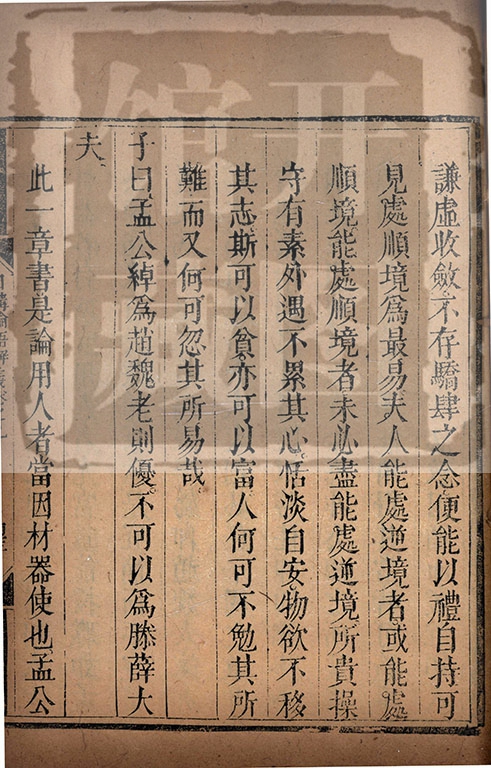 謙虛收斂不存驕肆之念便能以禮自持可
見處順境爲最易夫人能處逆境者或能處
順境能處順境者未必盡能處逆境所貴操
守有素外遇不累其心恬淡自安物欲不移
其志斯可以貧亦可以富人何可不勉其所
難而又何可忽其所易哉
子曰孟公綽爲趙魏老則優不可以爲滕薛大
夫
此一章書是論用人者當因材器使也孟公